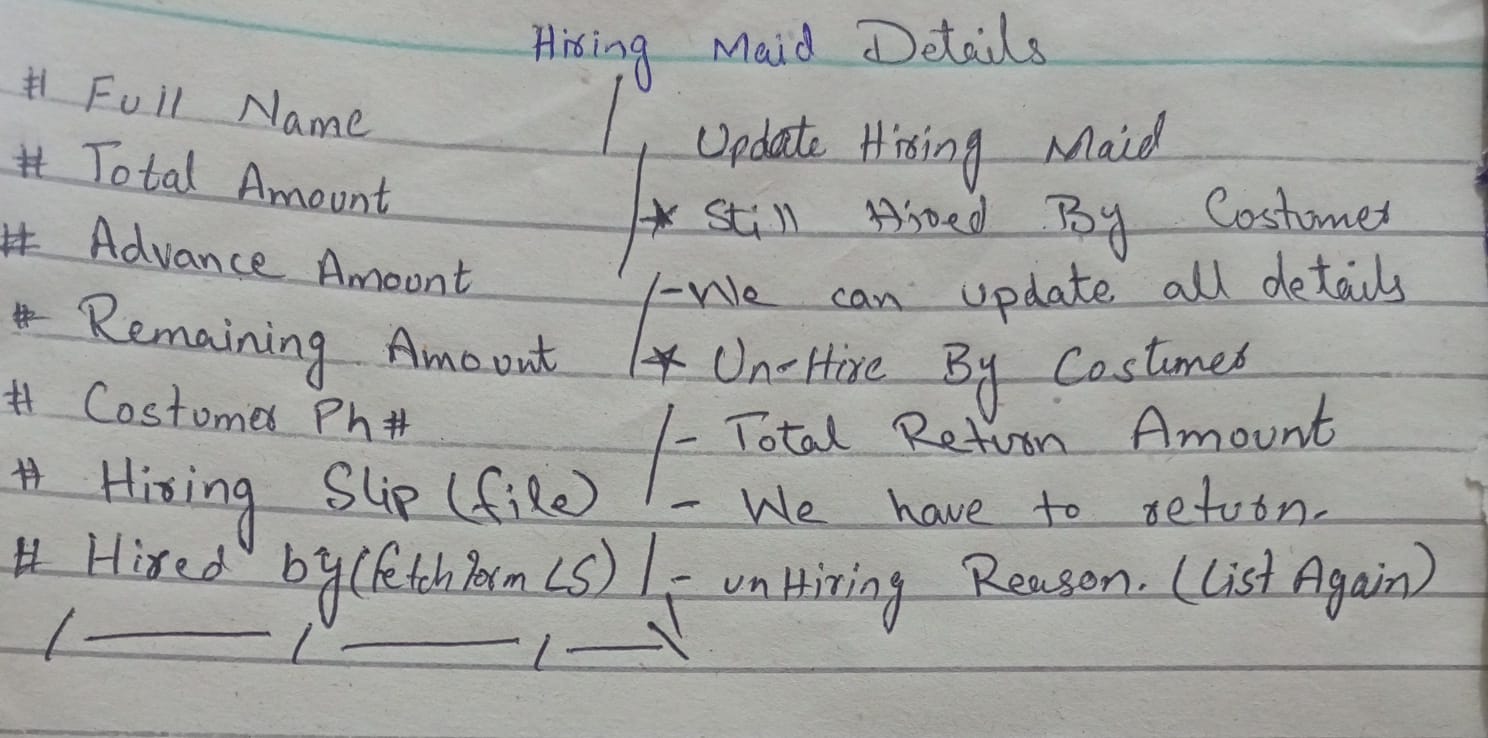 Hiring Maid Details
# Full Name
# Total Amount
# Advance Amount
# Remaining Amount
# Costumer Ph #
# Hiring Slip (file)
# Hired by (fetch form LS)
Update Hiring Maid
* Still Hired By Costumer
- We can update all details
* Un-Hire By Costumer
- Total Return Amount
- We have to return.
- un Hiring Reason. (List Again)